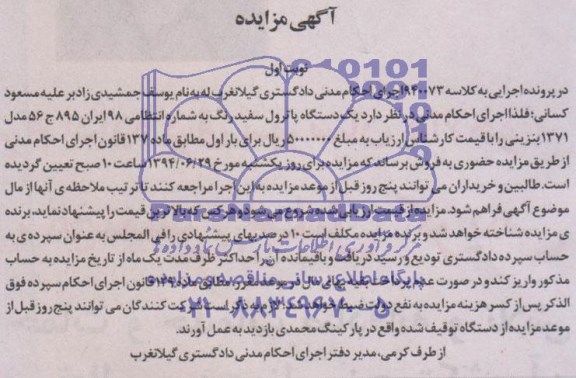 آگهی مزایده
نوبت اول
در پرونده اجرایی به کلاسه ۹۴۰۰۷۳ اجرای احکام مدنی دادگستری گیلانغرب له به نام یوسف جمشیدی زادبر علیه مسعود
کسانی: فلذا اجرای احکام مدنی در نظر دارد یک دستگاه پاترول سفید رنگ به شماره انتظامی ۹۸ ایران ۸۹۵ ج ۵۶ مدل
۱۳۷۱ بنزینی را با قیمت کارشناس ارزیاب به مبلغ ریال برای بار اول مطابق ماده ۱۳۷ قانون اجرای احکام مدنی
از طریق مزایده حضوری به فروش برساند که مزایده برای روز یکشنبه مورخ ۱۳۹۴/۰۶/۲۹ ساعت ۱۰ صبح تعیین گردیده
است. طالبین و خریداران می توانند پنج روز قبل از موعد مزایده به این اجرا مراجعه کنند تا ترتیب ملاحظه ی آنها از مال
موضوع آگهی فراهم شود. مزایده از قیمت ارزیابی شده شروع می شود و هر کس که بالاترین قیمت را پیشنهاد نماید، برنده
ی مزایده شناخته خواهد شد و برنده مزایده مکلف است ۱۰ درصد بهای پیشنهادی را فی المجلس به عنوان سپرده ی به
حساب سپرده دادگستری تودیع و رسید دریافت و باقیمانده آن را حداکثر ظرف مدت یک ماه از تاریخ مزایده به حساب
مذکور واریز کند و در صورت عدم پرداخت بقیه بهای مال در موعد مقرر مطابق ماده ۱۲۹ قانون اجرای احکام سپرده فوق
الذکر پس از کسر هزینه مزایده به نفع دولت ضبط خواهد شد. لازم به ذکر است شرکت کنندگان می توانند پنج روز قبل از
موعد مزایده از دستگاه توقیف شده واقع در پارکینگ محمدی بازدید به عمل آورند.
از طرف کرمی، مدیر دفتر اجرای احکام مدنی دادگستری گیلانغرب
ParsNamadData
مرکز فرآوری اطلاعات پارس نماد داده ها
پایگاه اطلاع رسانی مناقصه و مزایده
۰۲۱-۸۸۳۴۹۶۷۰-۵